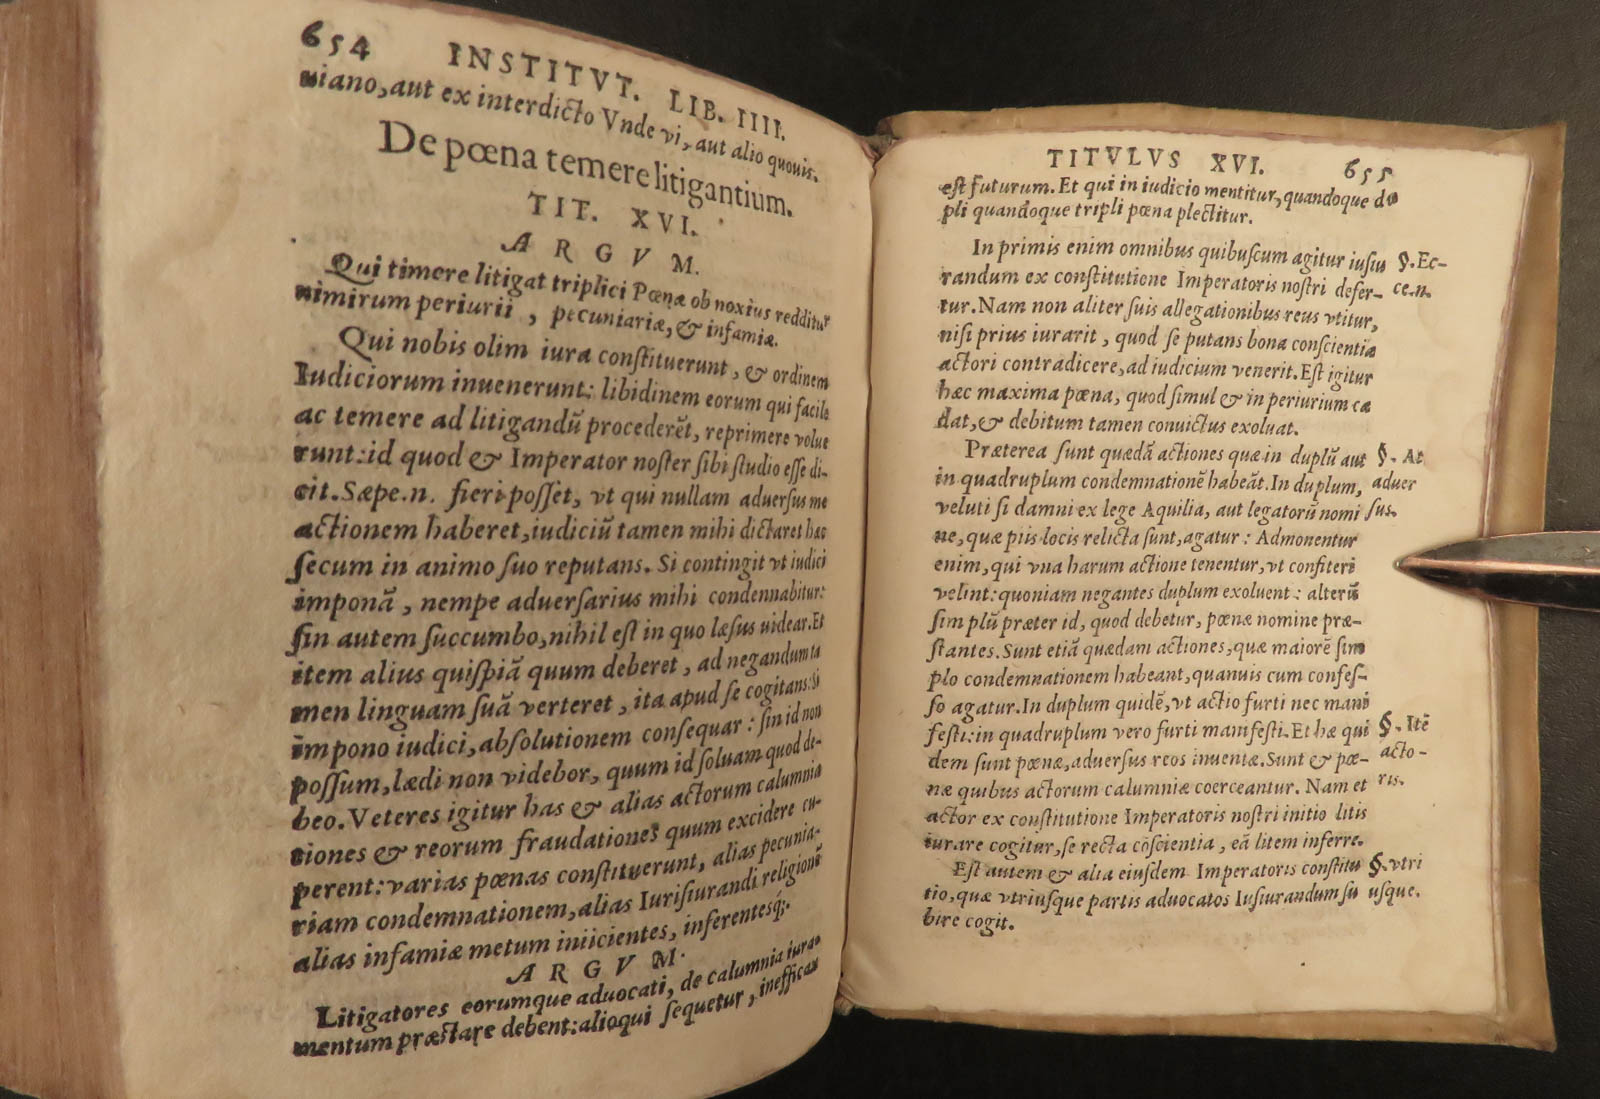 654 INSTITVT. LIB. IIII.
uiano, aut ex interdicto Vnde vi, aut alio quouis.
De pœna temere litigantium.
TIT. XVI.
ARGVM.
Qui timere litigat triplici Pœnæ obnoxius redditur
nimirum periurii, pecuniariæ, & infamiæ.
Qui nobis olim iura constituerunt, & ordinem
Iudiciorum inuenerunt: libidinem eorum qui facile
ac temere ad litigandū procederēt, reprimere volue
runt: id quod & Imperator noster sibi studio esse di-
cit. Sæpe.n. fieri posset, vt qui nullam aduersus me
actionem haberet, iudiciū tamen mihi dictaret hæc
secum in animo suo reputans. Si contingit vt iudici
imponā, nempe aduersarius mihi condennabitur:
sin autem succumbo, nihil est in quo læsus uidear. Et
item alius quispiā quum deberet, ad negandum ta
men linguam suā verteret, ita apud se cogitans: Si
impono iudici, absolutionem consequar: sin id non
possum, lædi non videbor, quum id soluam quod de-
beo. Veteres igitur has & alias actorum calumnia
tiones & reorum fraudationes quum excidere cu-
perent: varias pœnas constituerunt, alias pecunia-
riam condemnationem, alias Iurisiurandi religionē
alias infamiæ metum iniicientes, inferentesq;.
ARGVM.
Litigatores eorumque aduocati, de calumnia iura-
mentum præstare debent: alioqui sequetur, inefficax
TITVLVS XVI. 655
est futurum. Et qui in iudicio mentitur, quandoque du
pli quandoque tripli pœna plectitur.
In primis enim omnibus quibuscum agitur iusiu §. Ec-
randum ex constitutione Imperatoris nostri defer- ce.n.
tur. Nam non aliter suis allegationibus reus vtitur,
nisi prius iurarit, quod se putans bona conscientia
actori contradicere, ad iudicium venerit. Est igitur
hæc maxima pœna, quod simul & in periurium ca
dat, & debitum tamen conuictus exoluat.
Præterea sunt quædā actiones quæ in duplū aut §. At
in quadruplum condemnationē habeāt. In duplum, aduer
veluti si damni ex lege Aquilia, aut legatorū nomi sus.
ne, quæ piis locis relicta sunt, agatur: Admonentur
enim, qui vna harum actione tenentur, vt confiteri
velint: quoniam negantes duplum exoluent: alterū
simplū præter id, quod debetur, pœnæ nomine præ-
stantes. Sunt etiā quædam actiones, quæ maiorē sim
plo condemnationem habeant, quanuis cum confes-
so agatur. In duplum quidē, vt actio furti nec mani
festi: in quadruplum vero furti manifesti. Et hæ qui §. Itē
dem sunt pœnæ, aduersus reos inuentæ. Sunt & pœ- acto-
næ quibus actorum calumniæ coerceantur. Nam et ris.
actor ex constitutione Imperatoris nostri initio litis
iurare cogitur, se recta cōscientia, eā litem inferre.
Est autem & alia eiusdem Imperatoris constitu §. vtri
tio, quæ vtriusque partis aduocatos Iusiurandum su usque.
bire cogit.